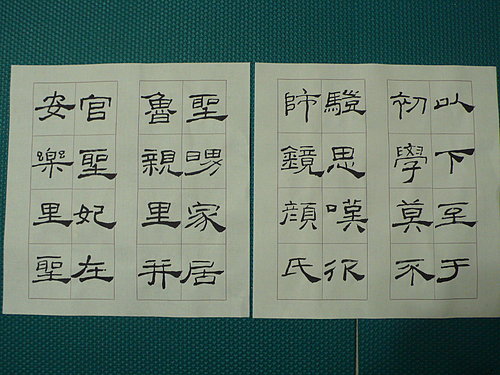 以下至于
初學莫不
思嘆卬
師鏡顏氏
聖舅家居
魯親里并
官聖妃在
安樂里聖